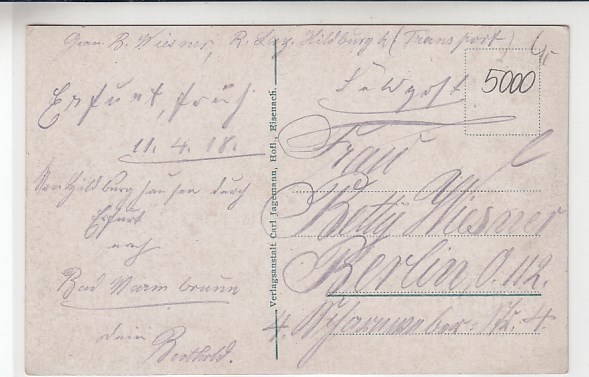 Gren. B. Wiesner, R. Laz. Hildburgh (Transport)
5000
Feldpost
Erfurt, früh
11. 4. 18.
Von Hildburghausen durch
Erfurt
nach
Bad Warmbrunn
Dein
Berthold.
Verlagsanstalt Carl Jagemann, Hofl., Eisenach.
Frau
Betty Wiesner
Berlin O. 112.
Scharnweber-Str. 4